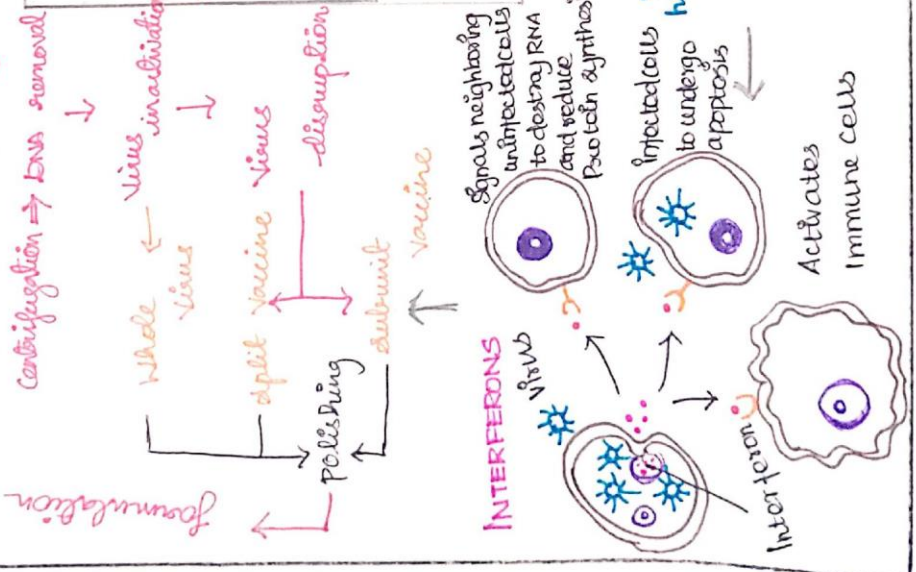 Centrifugation ⇒ DNA removal
↓
Virus inactivation
↓
Virus
disruption
Whole
virus
split vaccine
subunit
vaccine
Polishing
formulation
INTERFERONS
Virus
Interferon
Signals neighboring
uninfected cells
to destroy RNA
and reduce
Protein synthes
Infected cells
to undergo
apoptosis
Activates
Immune cells